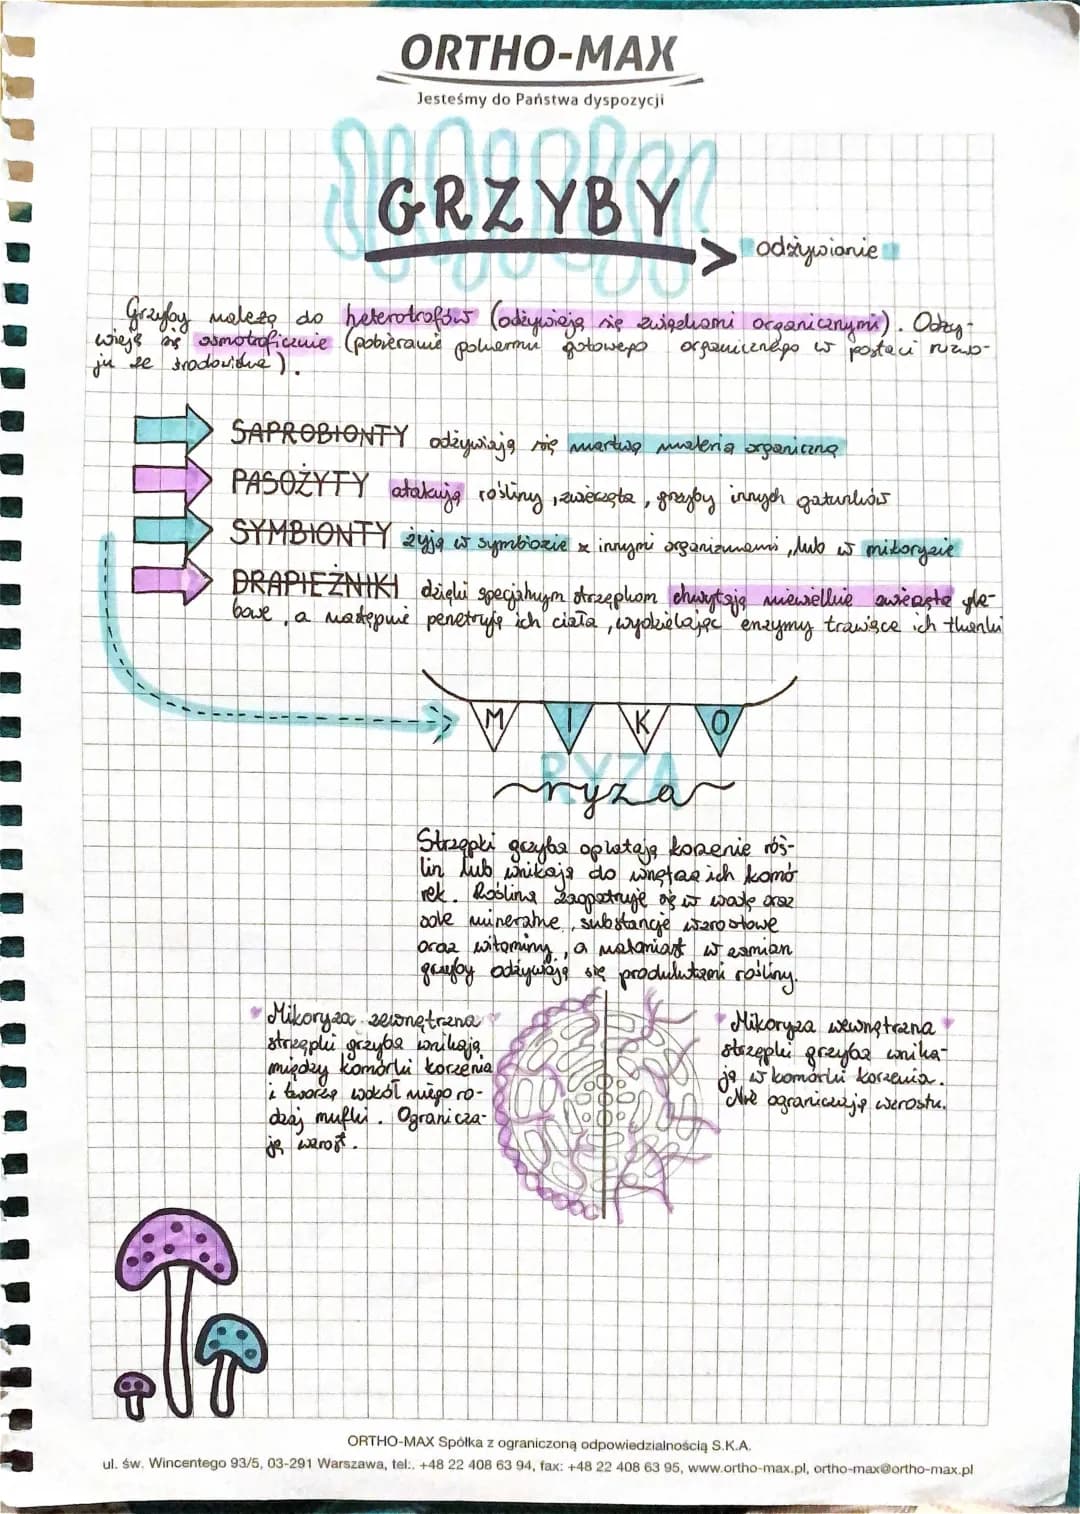 ORTHO-MAX
Jesteśmy do Państwa dyspozycji
GRZYBY
odżywianie
Grzyby należą do heterotrofów (odżywiają się związkami organicznymi). Odży-
wiają się osmotroficznie (pobieranie pokarmu gotowego organicznego w postaci roztwo-
ju ze środowiska).
SAPROBIONTY odżywiają się martwą materią organiczną
PASOŻYTY atakują rośliny, zwierzęta, grzyby innych gatunków
SYMBIONTY żyją w symbiozie z innymi organizmami, lub w mikoryzie
DRAPIEŻNIKI dzięki specjalnym strzępkom chwytają niewielkie zwierzęta gle-
bowe, a następnie penetrują ich ciała, wydzielając enzymy trawiące ich tkanki
MIKO
RYZA
ryza
Strzępki grzyba oplatają korzenie roś-
lin lub wnikają do wnętrza ich komó
rek. Roślina zaopatruje się w wodę oraz
sole mineralne, substancje wzrostowe
oraz witaminy, a natomiast w zamian
grzyby odżywiają się produktami rośliny.
Mikoryza zewnętrzna
strzępki grzyba wnikają
między komórki korzenia
i tworzą wokół niego ro-
dzaj mufki. Ogranicza-
ją wzrost.
Mikoryza wewnętrzna
strzępki grzyba wnika-
ją w komórki korzenia.
Nie ograniczają wzrostu.
ORTHO-MAX Spółka z ograniczoną odpowiedzialnością S.K.A.
ul. św. Wincentego 93/5, 03-291 Warszawa, tel:. +48 22 408 63 94, fax: +48 22 408 63 95, www.ortho-max.pl, ortho-max@ortho-max.pl